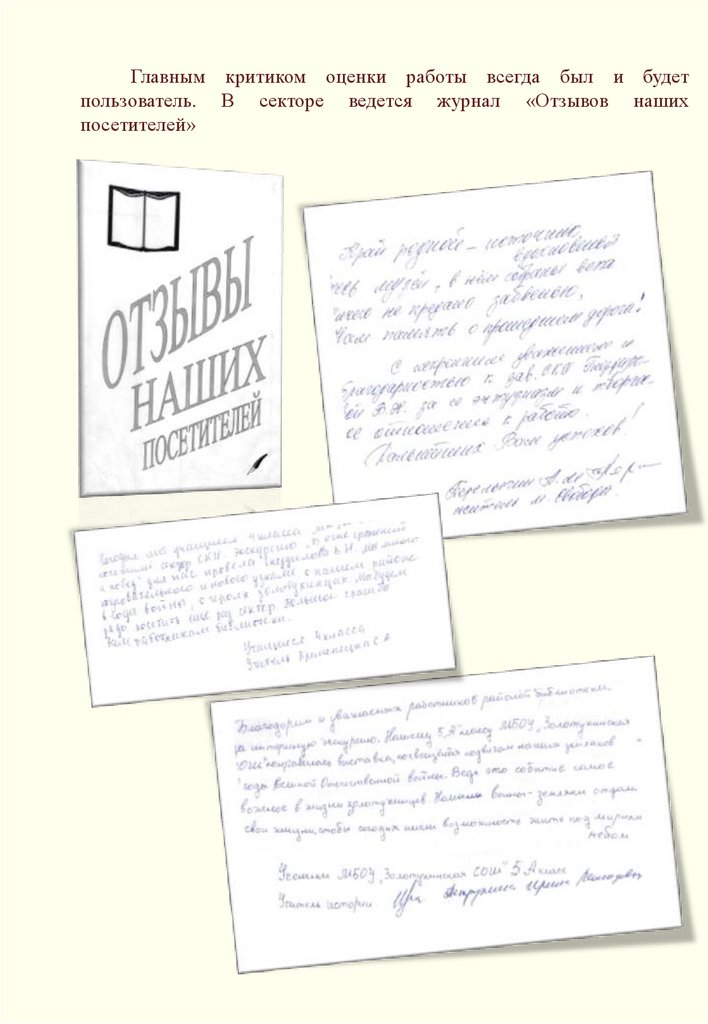 Главным критиком оценки работы всегда был и будет
пользователь. В секторе ведется журнал «Отзывов наших
посетителей»
ОТЗЫВЫ
НАШИХ
ПОСЕТИТЕЛЕЙ
Край родной – источник
вдохновений
музей, в нём собраны века
не предано забвенью,
память о прошедшем дорога!
С искренним уважением и
благодарностью к зав. СКИ
за её энтузиазм и
ое отношение к работе.
Дальнейших Вам успехов!
житель м. Свобода.
Сегодня мы учащиеся 4 класса
посетили сектор СКИ. Экскурсию „В огне сражений
и побед" для нас провела В Н. Мы много
познавательного и нового узнали о нашем районе
в годы войны, о героях золотухинцах. Мы будем
рады посетить ещё раз сектор. Большое спасибо
Вам работникам библиотеки.
Учащиеся 4 класса
Учитель
Благодарим и уважаемых работников районной библиотеки
за интересную экскурсию. Нашему 5„А" классу МБОУ „Золотухинская
СОШ" понравилась выставка, посвящённая подвигам наших земляков в
годы Великой Отечественной войны. Ведь это событие самое
важное в жизни золотухинцев. Наши воины-земляки отдали
свои жизни, чтобы сегодня имели возможность жить под мирным
небом
Ученики МБОУ „Золотухинская СОШ" 5 А класс
Учитель истории Ирина